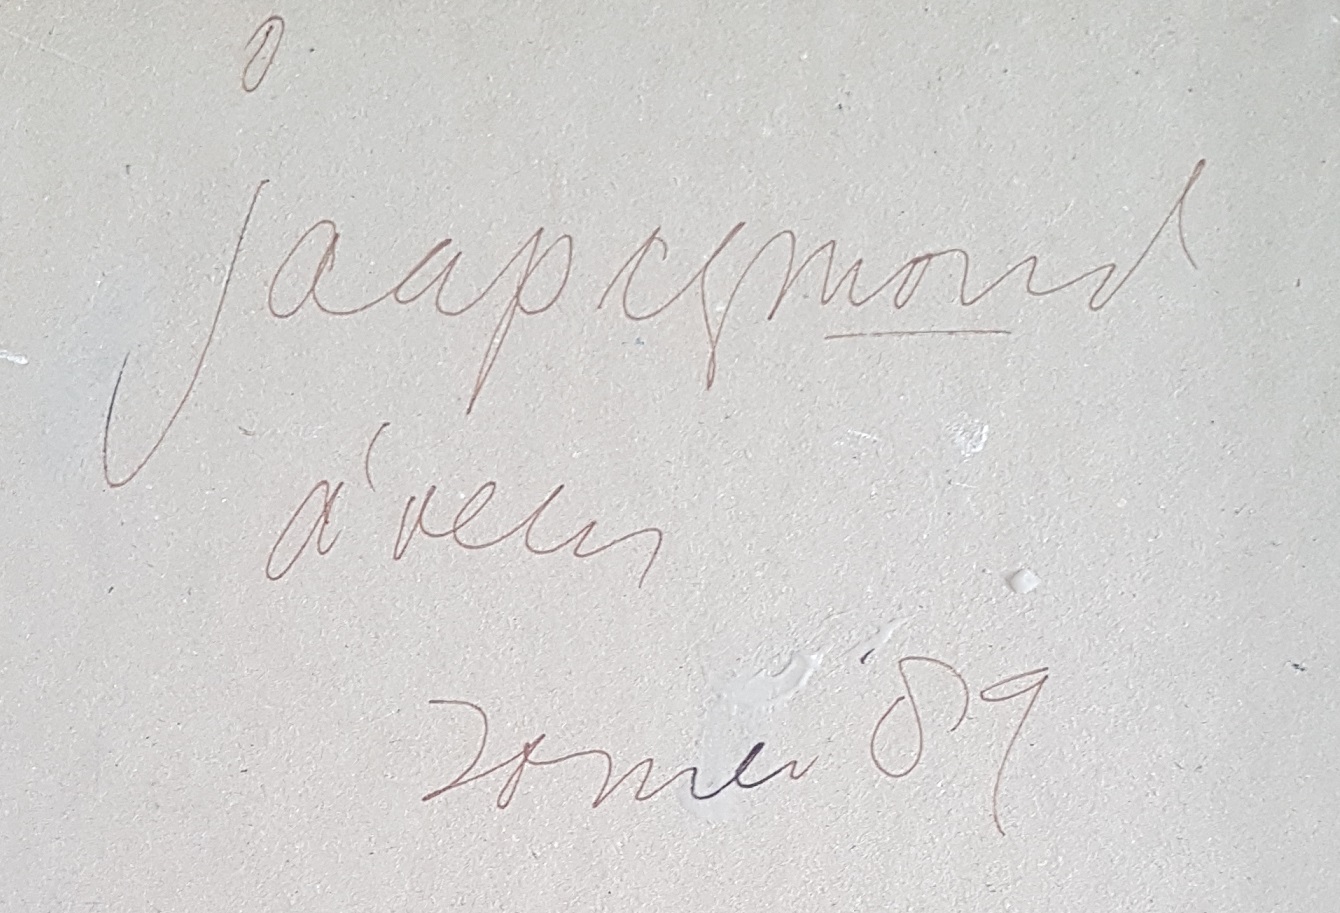 jaap egmond
a'veen
zomer '89